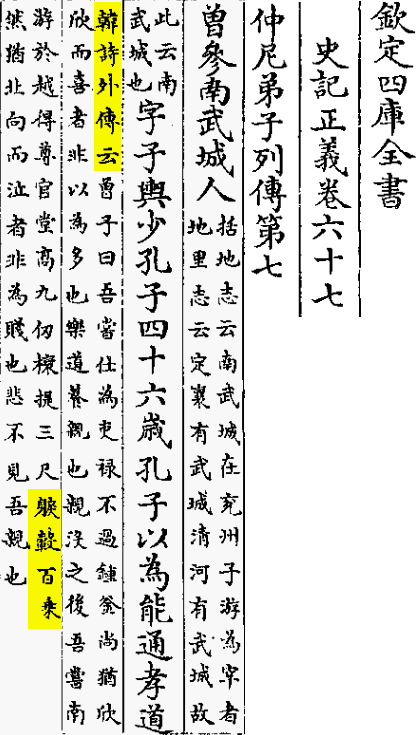 欽定四庫全書
史記正義卷六十七
仲尼弟子列傳第七
曾參南武城人
括地志云南武城在兖州子游為宰者
地里志云定襄有武城清河有武城故
此云南
武城也
字子輿少孔子四十六歲孔子以為能通孝道
韓詩外傳云曾子曰吾嘗仕為吏禄不過鍾釜尚猶欣
欣而喜者非以為多也樂道養親也親沒之後吾嘗南
游於越得尊官堂高九仞榱提三尺躲轂百乘
然猶北向而泣者非為賤也悲不見吾親也